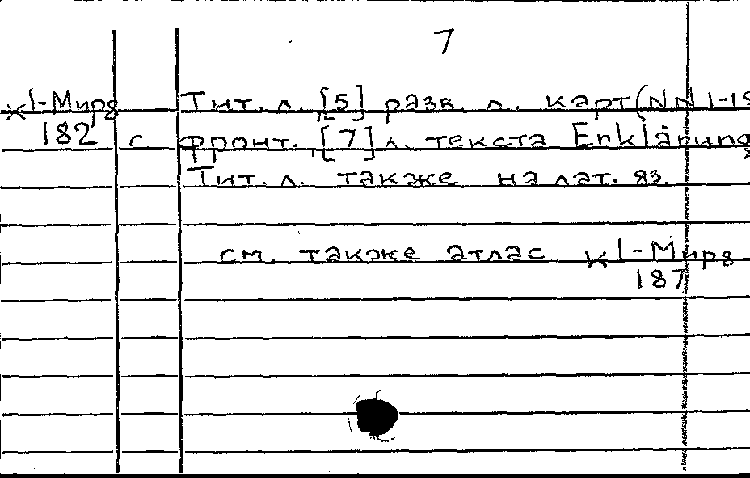 7
К1-Мирв Тит. л. [5] разв. л. карт (NN 1-15
182 с фронт. [7] л. текста Erklärung
Тит. л. также на лат. яз.
см. также атлас К1-Мирв
187